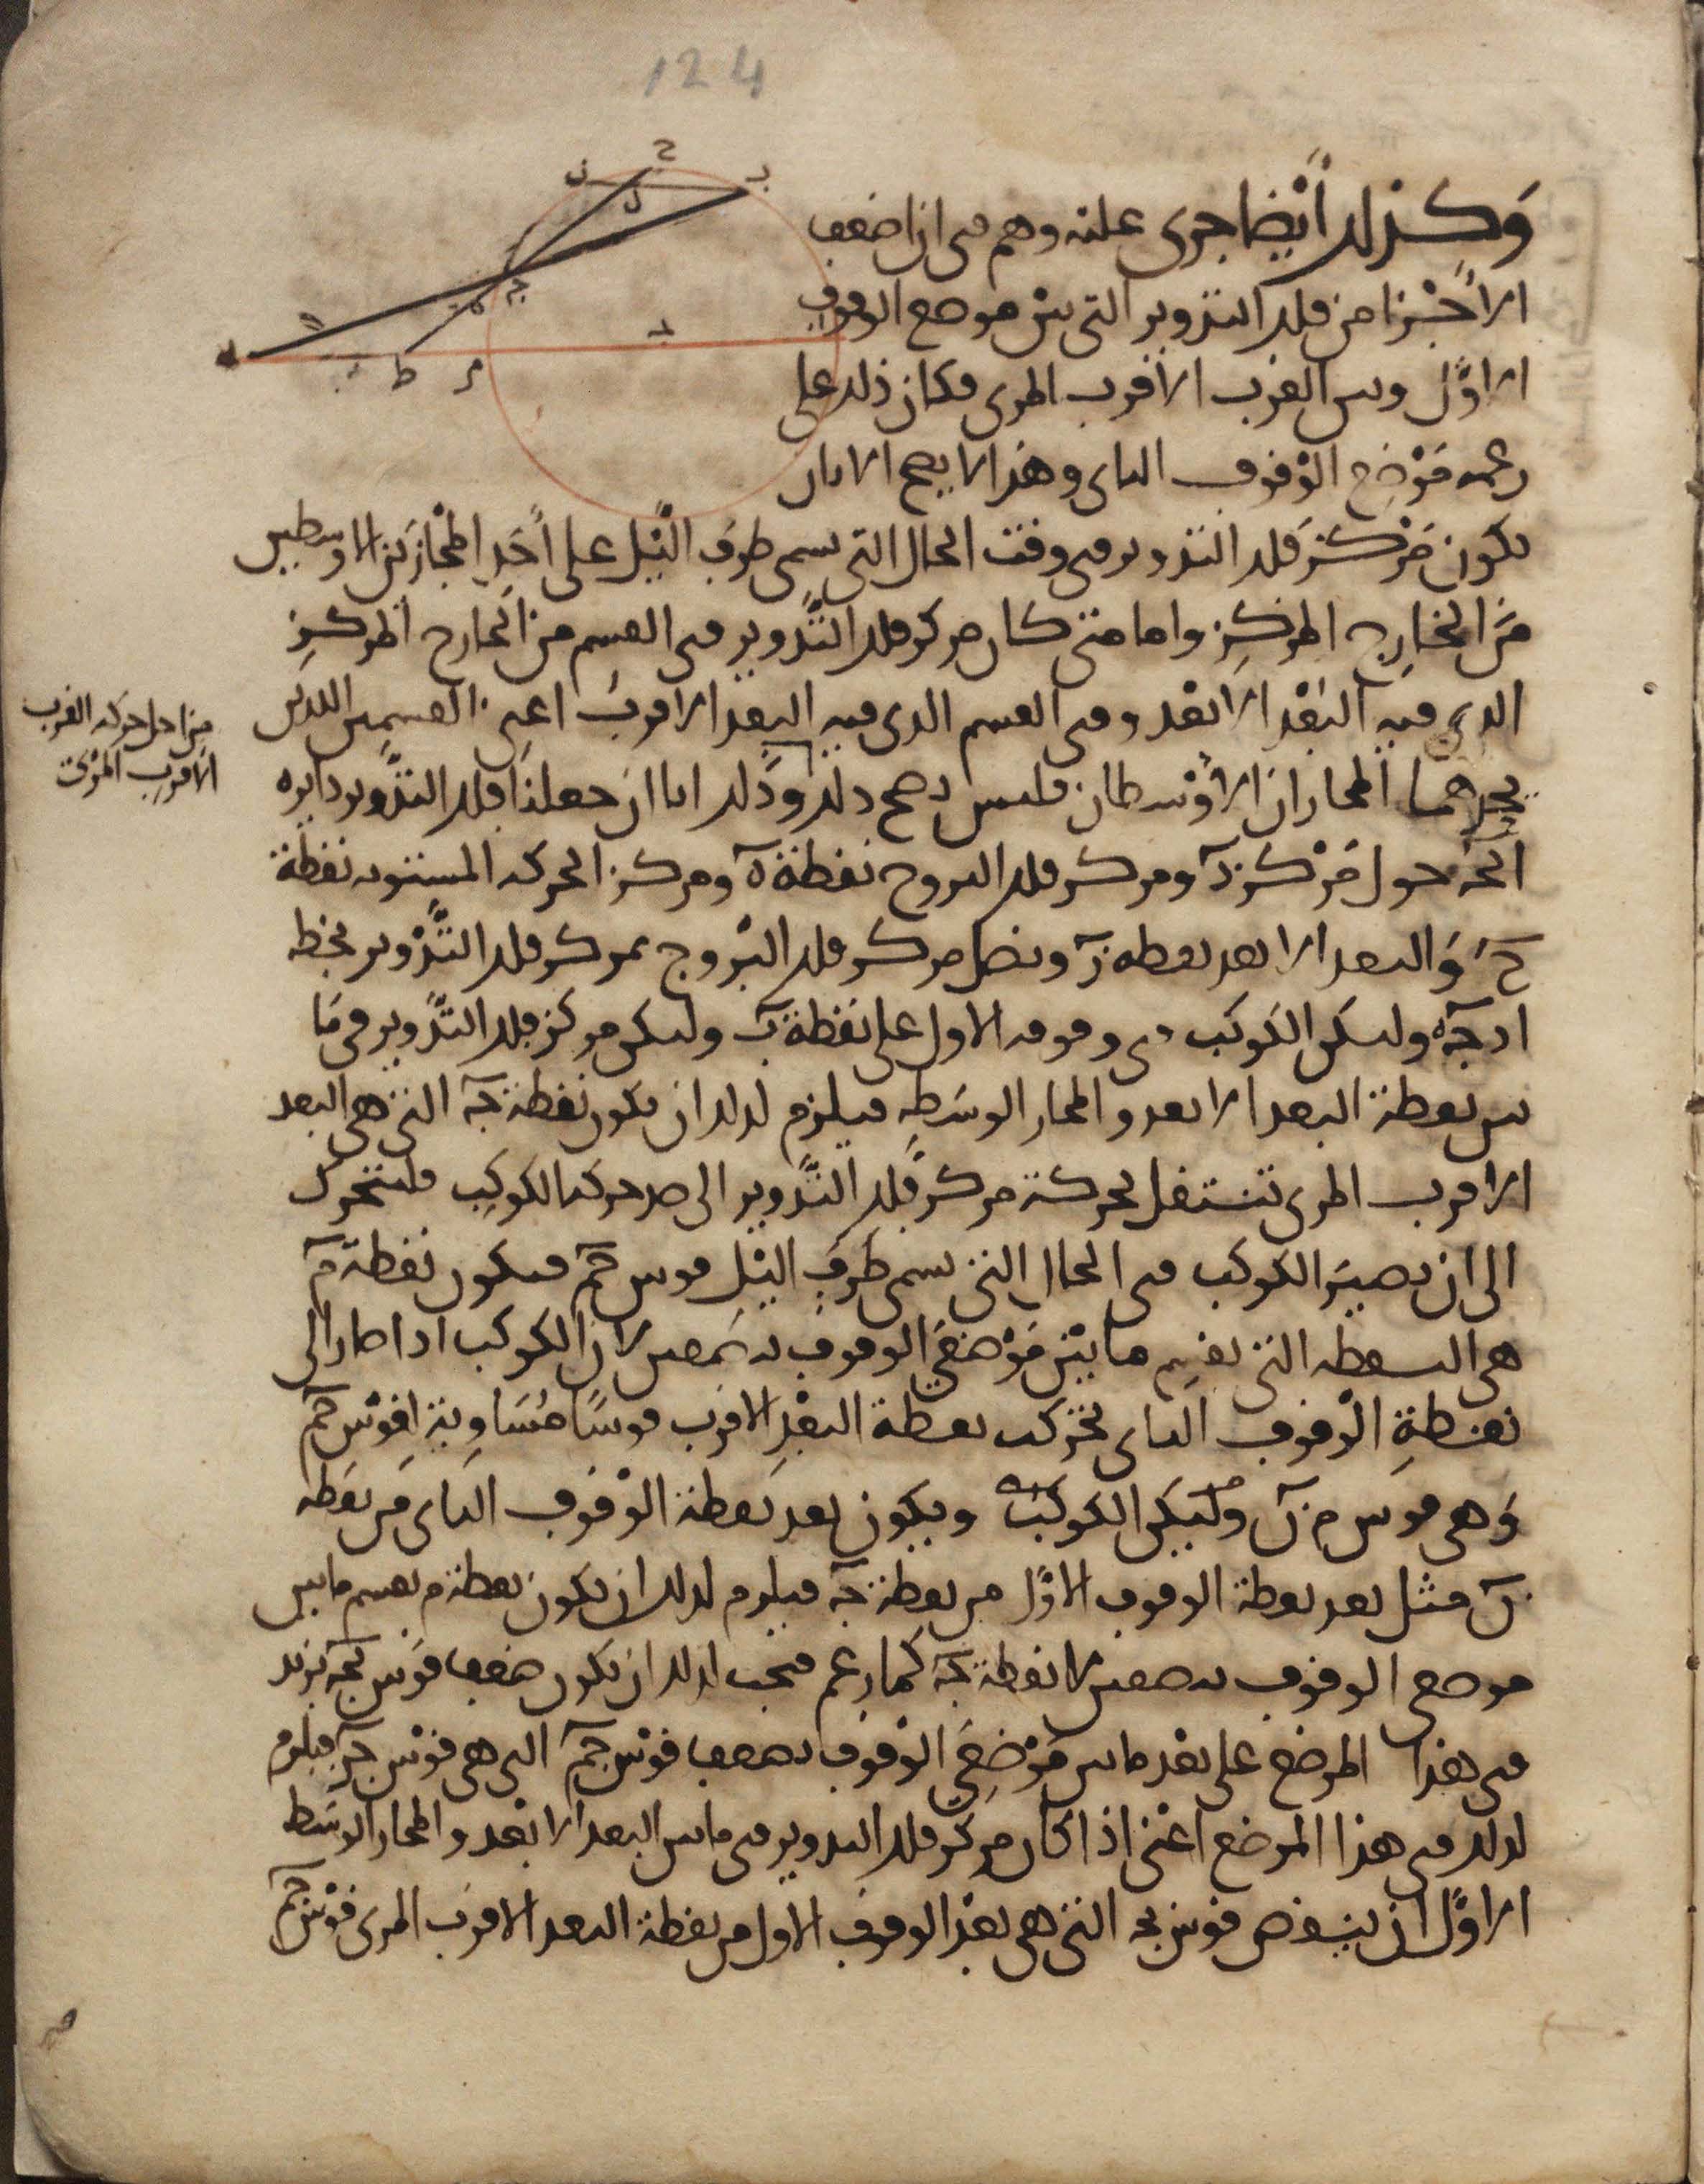 124
وكذلك أيضا جرى عليه وهم في ان اضعف
الاجزا من فلك التدوير التي بين موضع الوقوف
الاول وبين القرب الاقرب المرى فكان ذلك على
زعمه موضع الوقوف الثاني وهذا لا يصح الا بان
يكون مركز فلك التدوير في وقت الحال التي تسمى طرف الليل على أحد المجازين الاوسطين
من الخارج المركز واما متى كان مركز فلك التدوير في القسم من الخارج المركز
الذي فيه البعد الابعد وفي القسم الذي فيه البعد الاقرب اعني القسمين اللذين
يحدهما المجازان الاوسطان فليس يصح ذلك وذلك انا ان جعلنا فلك التدوير دايره
حول مركز د ومركز فلك البروج نقطة ه ومركز الحركه المستويه نقطة
ح والبعد الابعد نقطه ز ونصل مركز فلك البروج بمركز فلك التدوير بخط
وليكن الكوكب في وقوفه الاول على نقطة ب وليكن مركز فلك التدوير في ما
بين نقطة البعد الابعد والمجاز الوسط فيلزم لذلك ان تكون نقطة ج التي هي البعد
الاقرب المرى تنتقل بحركة مركز فلك التدوير الى ضد حركة الكوكب فلتتحرك
الى ان يصير الكوكب في الحال التي تسمى طرف الليل قوس جم فيكون نقطة م
هي النقطه التي تقسم ما بين موضعي الوقوف بنصفين لان الكوكب اذا صار الى
نقطة الوقوف الثاني تحركت نقطة البعد الاقرب قوسا مساوية لقوس جم
وهي قوس م ن وليكن الكوكب ويكون بعد نقطة الوقوف الثاني من نقطه
ن مثل بعد نقطة الوقوف الاول من نقطة ج فيلزم لذلك ان تكون نقطة م تقسم ما بين
موضعي الوقوف بنصفين لا نقطة ج كما زعم فيجب لذلك ان يكون ضعف قوس بج يزيد
في هذا الموضع على بعد ما بين موضعي الوقوف بضعف قوس جم التي هي قوس جن فيلزم
لذلك في هذا الموضع اعني اذا كان مركز فلك التدوير في ما بين البعد الابعد والمجاز الوسط
الاول ان ينقص قوس بج التي هي بعد الوقوف الاول من نقطة البعد الاقرب المرى قوس جم
من اجل حركة القرب
الاقرب المرئي